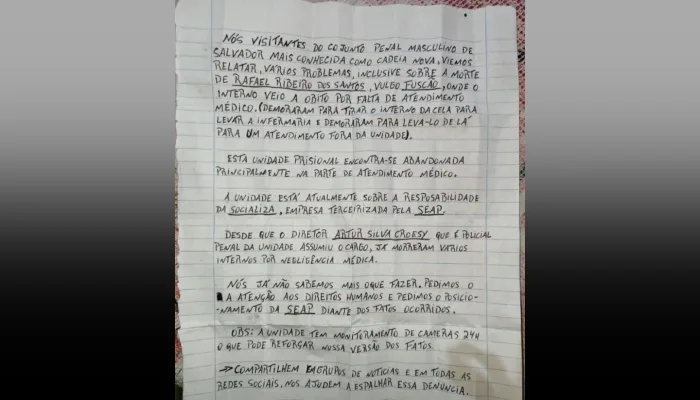 NÓS VISITANTES DO COJUNTO PENAL MASCULINO DE
SALVADOR MAIS CONHECIDA COMO CADEIA NOVA, VIEMOS
RELATAR, VÁRIOS PROBLEMAS, INCLUSIVE SOBRE A MORTE
DE RAFAEL RIBEIRO DOS SANTOS, VULGO FUSCÃO, ONDE O
INTERNO VEIO A OBITO POR FALTA DE ATENDIMENTO
MÉDICO. (DEMORARAM PARA TIRAR O INTERNO DA CELA PARA
LEVAR A INFERMARIA E DEMORARAM PARA LEVA-LO DE LÁ
PARA UM ATENDIMENTO FORA DA UNIDADE).
ESTA UNIDADE PRISIONAL ENCONTRA-SE ABANDONADA
PRINCIPALMENTE NA PARTE DE ATENDIMENTO MÉDICO.
A UNIDADE ESTÁ ATUALMENTE SOBRE A RESPOSABILIDADE
DA SOCIALIZA, EMPRESA TERCEIRIZADA PELA SEAP.
DESDE QUE O DIRETOR ARTUR SILVA CROESY QUE É POLICIAL
PENAL DA UNIDADE ASSUMIU O CARGO, JÁ MORRERAM VARIOS
INTERNOS POR NEGLIGÊNCIA MÉDICA.
NÓS JÁ NÃO SABEMOS MAIS OQUE FAZER. PEDIMOS O
A ATENÇÃO AOS DIREITOS HUMANOS E PEDIMOS O POSICIO-
NAMENTO DA SEAP DIANTE DOS FATOS OCORRIDOS.
OBS: A UNIDADE TEM MONITORAMENTO DE CAMERAS 24H
O QUE PODE REFORÇAR NOSSA VERSÃO DOS FATOS.
→ COMPARTILHEM EM GRUPOS DE NOTICIAS E EM TODAS AS
REDES SOCIAIS, NOS AJUDEM A ESPALHAR ESSA DENUNCIA.